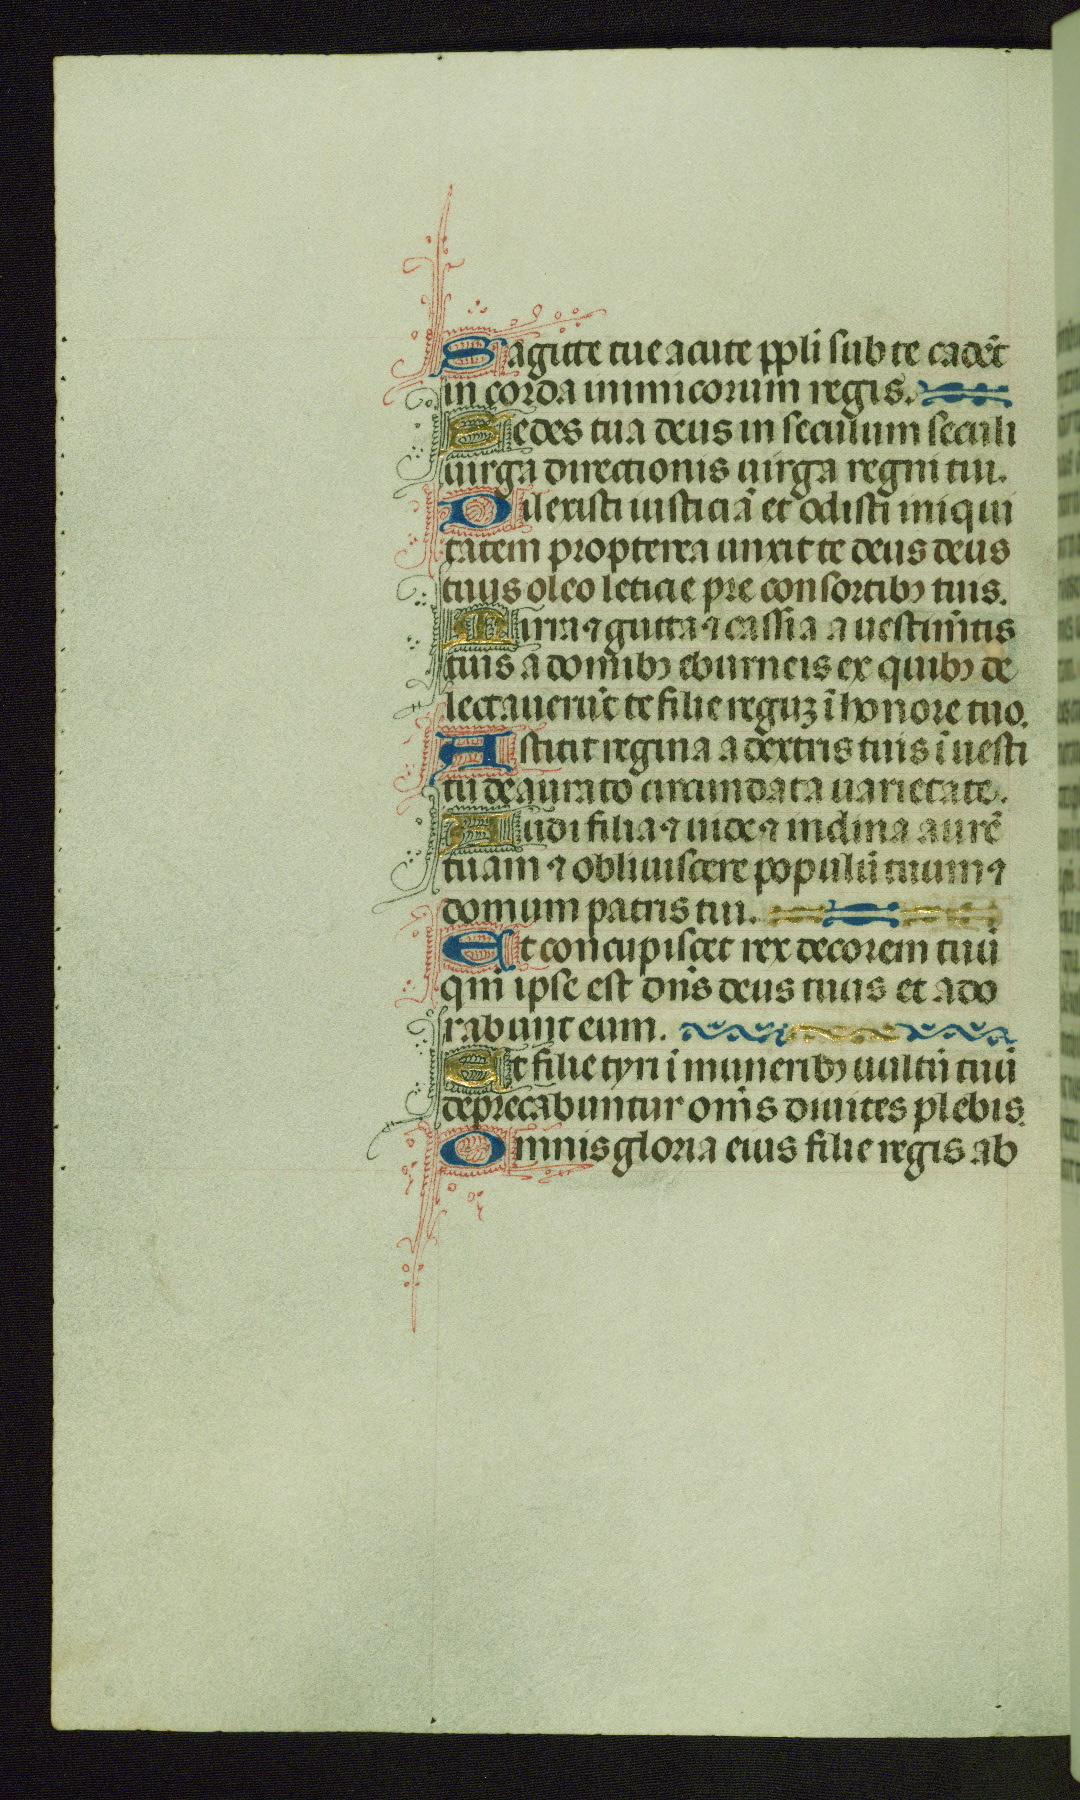 Sagitte tue acute ppli sub te cadēt
in corda inimicorum regis.
Sedes tua deus in seculum seculi
uirga directionis uirga regni tui.
Dilexisti iusticiā et odisti iniqui
tatem propterea unxit te deus deus
tuus oleo leticie pre consortibꝫ tuis.
Mirra ⁊ gutta ⁊ cassia a uestimētis
tuis a domibꝫ eburneis ex quibꝫ de
lectauerūt te filie reguꝫ ī honore tuo.
Astitit regina a dextris tuis ī uesti
tu deaurato circumdata uarietate.
Audi filia ⁊ uide ⁊ inclina aurē
tuam ⁊ obliuiscere populū tuum ⁊
domum patris tui.
Et concupiscet rex decorem tuū
qm̄ ipse est dn̄s deus tuus et ado
rabunt eum.
Et filie tyri ī muneribꝫ uultū tuū
deprecabuntur om̄s diuites plebis.
Omnis gloria eius filie regis ab